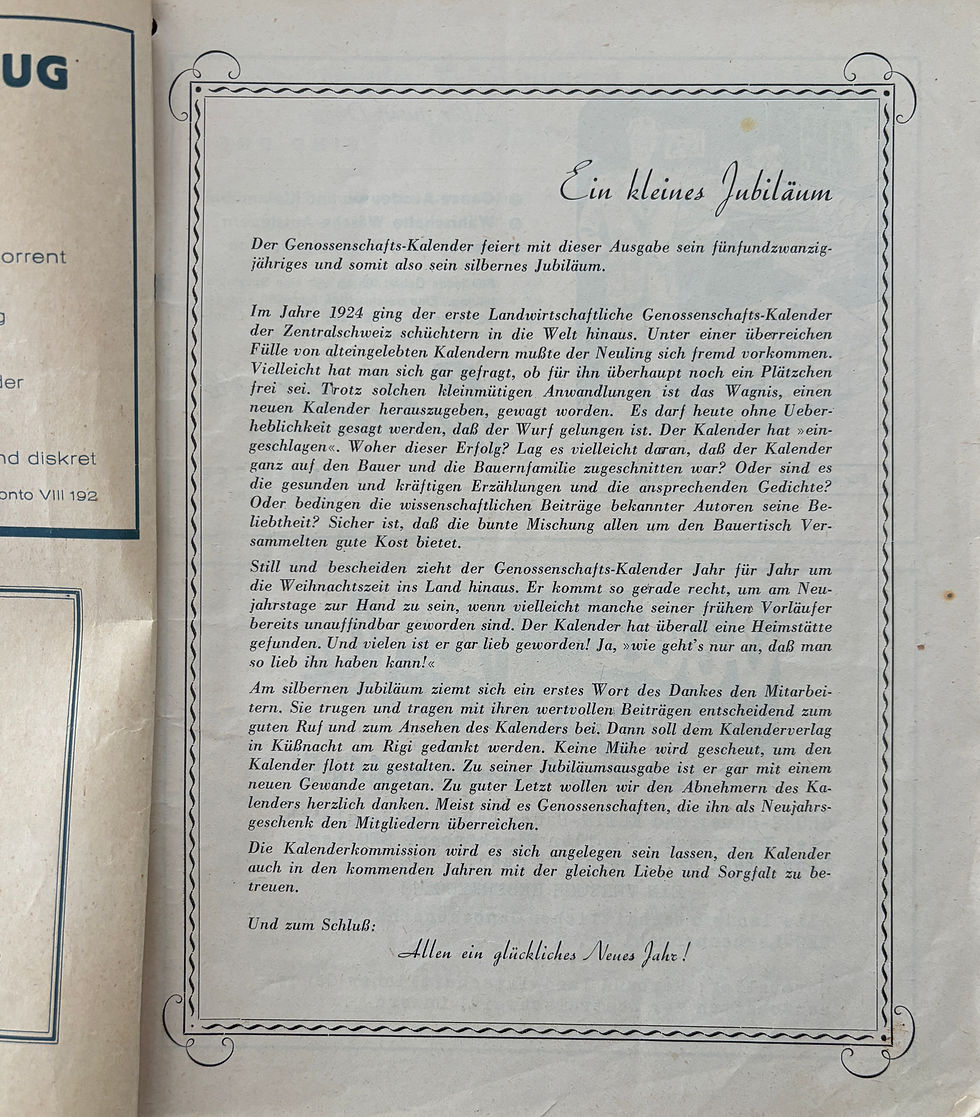 UG
orrent
g
der
nd diskret
onto VIII 192
Ein kleines Jubiläum
Der Genossenschafts-Kalender feiert mit dieser Ausgabe sein fünfundzwanzig-
jähriges und somit also sein silbernes Jubiläum.
Im Jahre 1924 ging der erste Landwirtschaftliche Genossenschafts-Kalender
der Zentralschweiz schüchtern in die Welt hinaus. Unter einer überreichen
Fülle von alteingelebten Kalendern mußte der Neuling sich fremd vorkommen.
Vielleicht hat man sich gar gefragt, ob für ihn überhaupt noch ein Plätzchen
frei sei. Trotz solchen kleinmütigen Anwandlungen ist das Wagnis, einen
neuen Kalender herauszugeben, gewagt worden. Es darf heute ohne Ueber-
heblichkeit gesagt werden, daß der Wurf gelungen ist. Der Kalender hat »ein-
geschlagen«. Woher dieser Erfolg? Lag es vielleicht daran, daß der Kalender
ganz auf den Bauer und die Bauernfamilie zugeschnitten war? Oder sind es
die gesunden und kräftigen Erzählungen und die ansprechenden Gedichte?
Oder bedingen die wissenschaftlichen Beiträge bekannter Autoren seine Be-
liebtheit? Sicher ist, daß die bunte Mischung allen um den Bauertisch Ver-
sammelten gute Kost bietet.
Still und bescheiden zieht der Genossenschafts-Kalender Jahr für Jahr um
die Weihnachtszeit ins Land hinaus. Er kommt so gerade recht, um am Neu-
jahrstage zur Hand zu sein, wenn vielleicht manche seiner frühern Vorläufer
bereits unauffindbar geworden sind. Der Kalender hat überall eine Heimstätte
gefunden. Und vielen ist er gar lieb geworden! Ja, »wie geht's nur an, daß man
so lieb ihn haben kann!«
Am silbernen Jubiläum ziemt sich ein erstes Wort des Dankes den Mitarbei-
tern. Sie trugen und tragen mit ihren wertvollen Beiträgen entscheidend zum
guten Ruf und zum Ansehen des Kalenders bei. Dann soll dem Kalenderverlag
in Küßnacht am Rigi gedankt werden. Keine Mühe wird gescheut, um den
Kalender flott zu gestalten. Zu seiner Jubiläumsausgabe ist er gar mit einem
neuen Gewande angetan. Zu guter Letzt wollen wir den Abnehmern des Ka-
lenders herzlich danken. Meist sind es Genossenschaften, die ihn als Neujahrs-
geschenk den Mitgliedern überreichen.
Die Kalenderkommission wird es sich angelegen sein lassen, den Kalender
auch in den kommenden Jahren mit der gleichen Liebe und Sorgfalt zu be-
treuen.
Und zum Schluß:
Allen ein glückliches Neues Jahr!